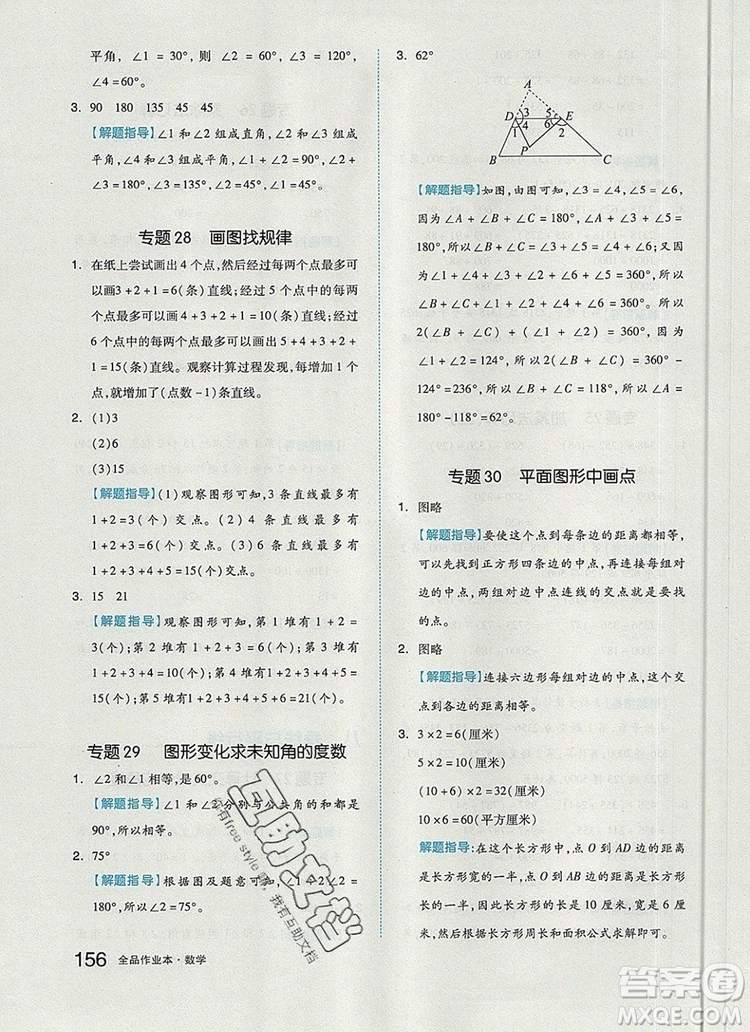 平角，∠1＝30°，则∠2＝60°，∠3＝120°，
∠4＝60°。
3. 90　180　135　45　45
【解题指导】∠1和∠2组成直角，∠2和∠3组成
平角，∠4和∠3组成平角，∠1＋∠2＝90°，∠2＋
∠3＝180°，∠3＝135°，∠2＝45°，∠1＝45°。
专题28　画图找规律
1. 在纸上尝试画出4个点，然后经过每两个点最多可
以画3＋2＋1＝6（条）直线；经过5个点中的每两
个点最多可以画4＋3＋2＋1＝10（条）直线；经过
6个点中的每两个点最多可以画5＋4＋3＋2
＋1＝15（条）直线。观察计算过程发现，每增加1个
点，就增加了（点数－1）条直线。
2. （1）3
（2）6
（3）15
【解题指导】（1）观察图形可知，3条直线最多有
1＋2＝3（个）交点。（2）4条直线最多有
1＋2＋3＝6（个）交点。（3）6条直线最多有
1＋2＋3＋4＋5＝15（个）交点。
3. 15　21
【解题指导】观察图形可知，第1堆有1＋2＝
3（个）；第2堆有1＋2＋3＝6（个）；第3堆有
1＋2＋3＋4＝10（个）；第4堆有1＋2＋3＋4＋5＝
15（个）；第5堆有1＋2＋3＋4＋5＋6＝21（个）。
专题29　图形变化求未知角的度数
1. ∠2和∠1相等，是60°。
【解题指导】∠1和∠2分别与公共角的和都是
90°，所以相等。
2. 75°
【解题指导】根据图及题意可知，∠1＋∠2＋∠2＝
180°，所以∠2＝75°。
156　全品作业本·数学
3. 62°
A
D 3 5 E
1 4 6 2
P
B C
【解题指导】如图，由图可知，∠3＝∠4，∠5＝∠6，
因为∠A＋∠B＋∠C＝180°，所以∠B＋∠C＝
180°－∠A，同理可知，∠3＋∠5＝180°－∠A，所以
∠3＋∠5＝∠B＋∠C，因为∠1＋∠3＋∠4＝
180°，∠2＋∠5＋∠6＝180°，所以∠1＋∠3＋
∠4＋∠2＋∠5＋∠6＝360°，所以
2（∠B＋∠C）＋（∠1＋∠2）＝360°，因为
∠1＋∠2＝124°，所以2（∠B＋∠C）＝360°－
124°＝236°，所以∠B＋∠C＝118°，所以∠A＝
180°－118°＝62°。
专题30　平面图形中画点
1. 图略
【解题指导】要使这个点到每条边的距离都相等，
可以先找到正方形四条边的中点，再连接每组对
边的中点，两组对边中点连线的交点就是要找
的点。
2. 图略
【解题指导】连接六边形每组对边的中点，这个交
点到各条边的距离相等。
3. 3×2＝6（厘米）
5×2＝10（厘米）
（10＋6）×2＝32（厘米）
10×6＝60（平方厘米）
【解题指导】在这个长方形中，点O到AD边的距
离是长方形宽的一半，点O到AB边的距离是长
方形长的一半，所以长方形的长是10厘米，宽是6厘
米，再根据长方形周长和面积公式求解即可。
互助文档
享有free style 啊，我有互助文档
答案圈
MXQE.COM